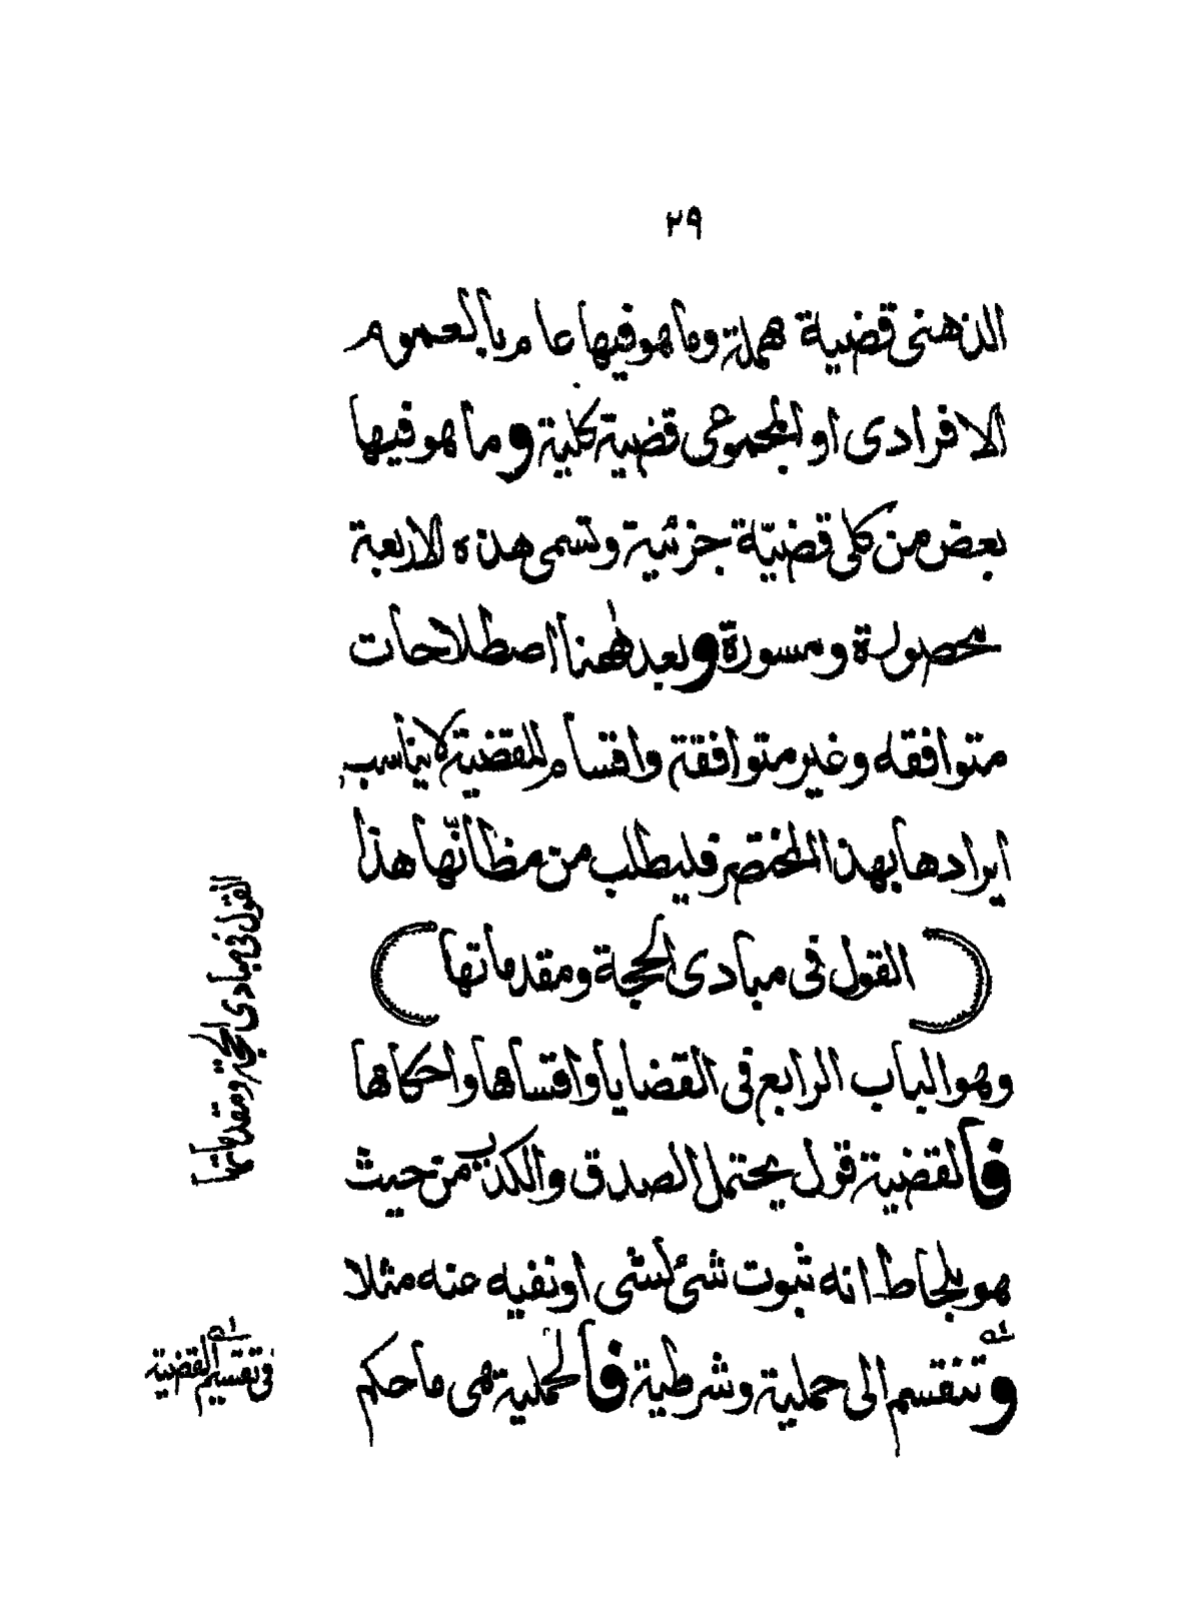 ٢٩
الذهنى قضية هملة وما هو فيها عام بالعموم
الافرادى او المجموعى قضية كلية وما هو فيها
بعض من كلى قضيّة جزئية وتسمى هذه الاربعة
محصورة ومسورة وبعد ههنا اصطلاحات
متوافقه وغير متوافقة واقسام للقضية لا يناسب
ايرادها بهذا المختصر فليطلب من مظانّها هذا
القول فى مبادى الحجة ومقدماتها
وهو الباب الرابع فى القضايا واقسامها واحكامها
فالقضية قول يحتمل الصدق والكذب من حيث
هو بلحاظ انه ثبوت شئ لشى او نفيه عنه مثلا
وتنقسم الى حملية وشرطية فالحملية هى ما حكم
القول فى مبادى الحجة ومقدماتها
فى تقسيم القضية